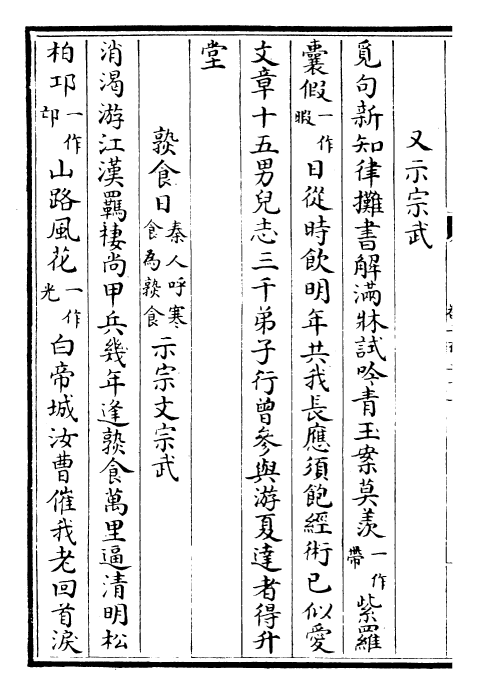 又示宗武
覓句新知律攤書解滿牀試吟青玉案莫羨一作帶紫羅
囊假一作暇日從時飲明年共我長應須飽經術已似愛
文章十五男兒志三千弟子行曾參與游夏達者得升
堂
熟食日秦人呼寒食為熟食示宗文宗武
消渴游江漢羈棲尚甲兵幾年逢熟食萬里逼清明松
柏邛一作邙山路風花一作光白帝城汝曹催我老回首淚